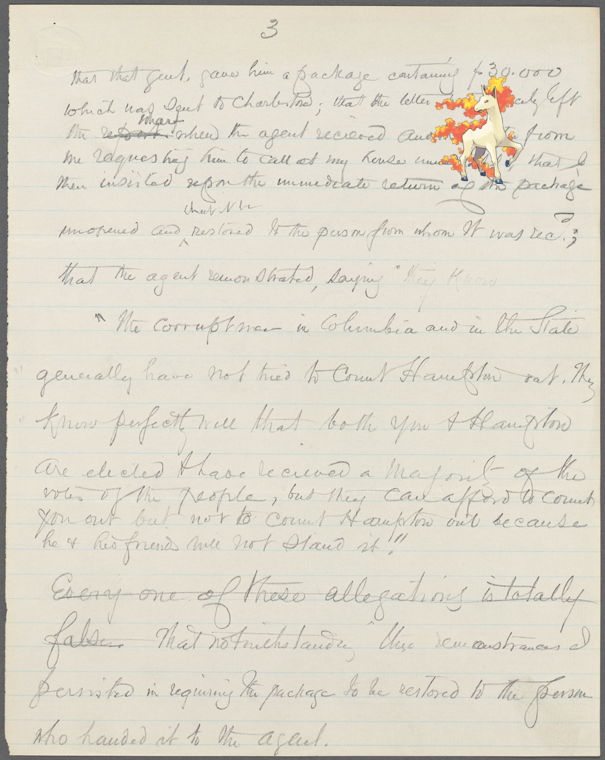 3
that that gent. gave him a package containing $30.000
which was sent to Charleston; that the letter left
the wharf when the agent recieved and from
me requesting him to call at my house that I
then insisted upon the immediate return of the package
unopened and restored to the person from whom it was rec.;
that the agent remonstrated, saying "they know
"The corruptness in Columbia and in the State
generally have not tried to Count Hampton out. They
know perfectly well that both you & Hampton
are elected & have recieved a Majority of the
votes of the people, but they can afford to Count
you out but not to Count Hampton out because
he & his friends will not stand it."
Every one of these allegations is totally
false. That notwithstanding these remonstrances I
persisted in requiring the package to be restored to the person
who handed it to the agent.